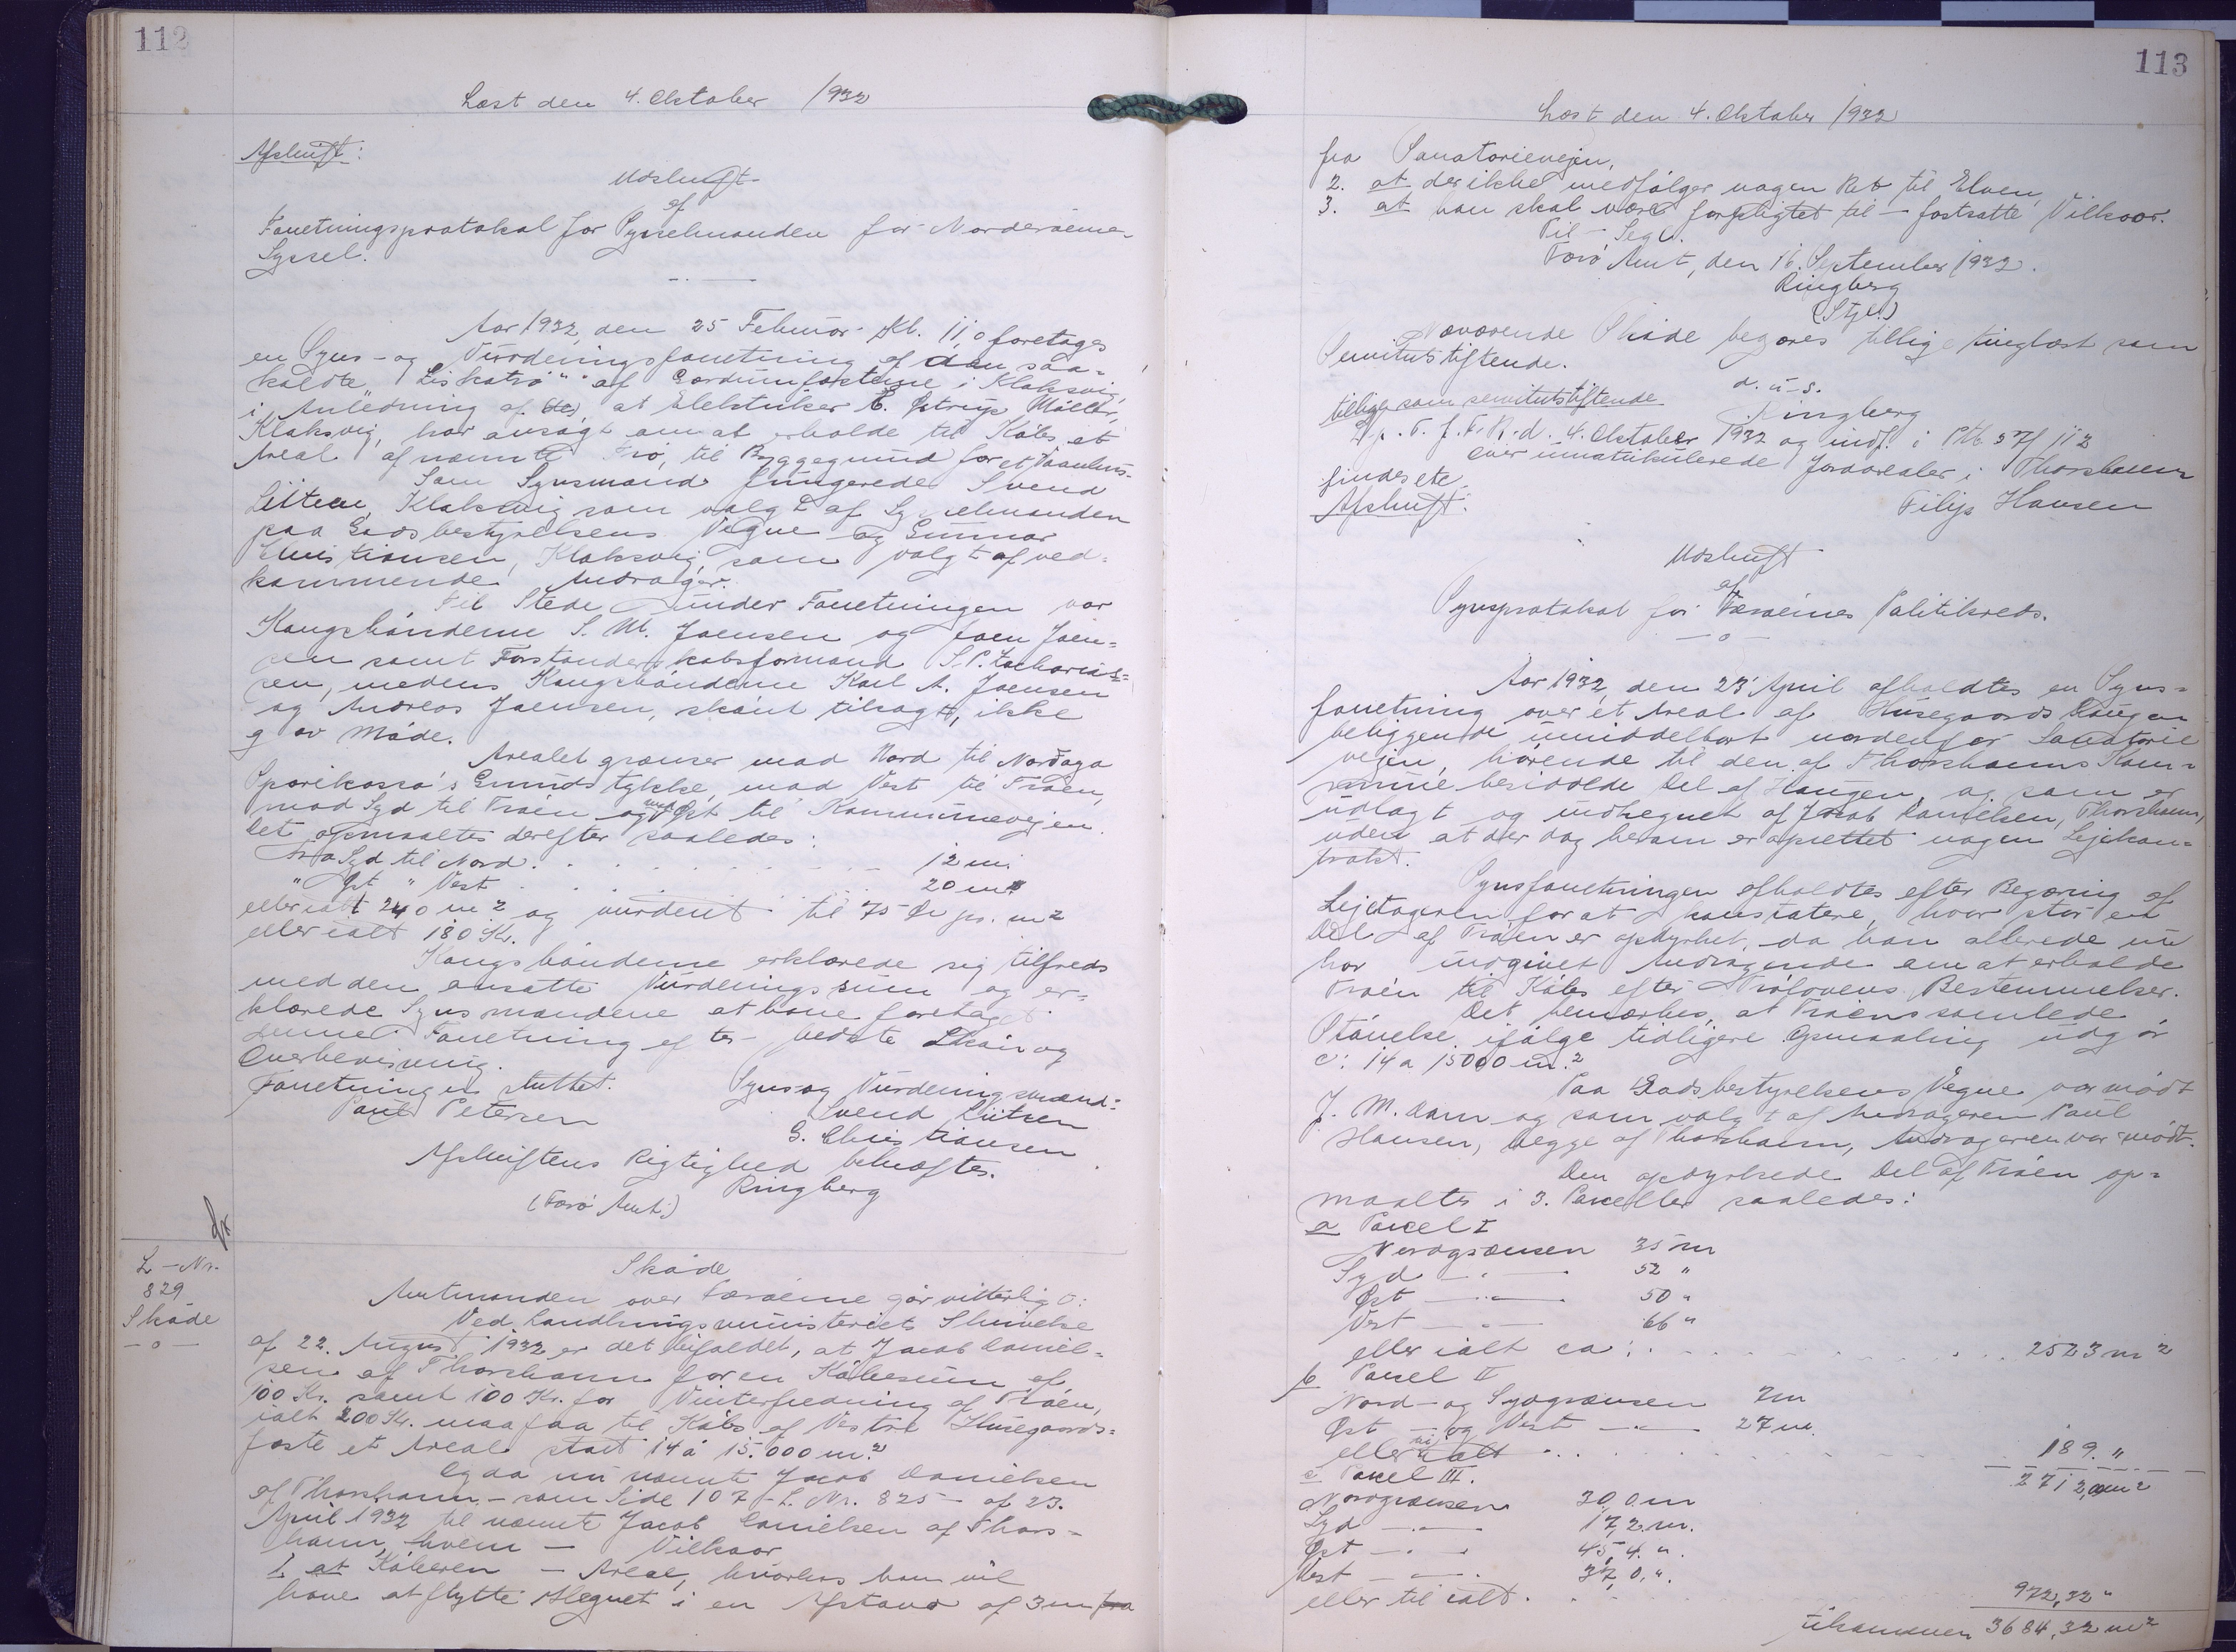 112
Læst den 4. Oktober 1932
Afskrift:
Udskrift
af
Forretningsprotokol for Sysselmanden for Norderøernes
Syssel.
Aar 1932, den 25 Februar Kl. 11,0 foretages
en Syns- og Vurderingsforretning af den saa-
kaldte "Liskatrø" af i Klaksvig,
i Anledning af at Elektriker E. Østrup Møller,
Klaksvig, har ansøgt om at erholde til Købs et
Areal af nævnte Trø, til Byggegrund for et Vaanhus.
Som Synsmænd fungerede Svend
Klaksvig som valgt af Sysselmanden
paa Godsbestyrelsens Vegne og Gunnar
Christiansen, Klaksvig, som valgt af ved-
kommende Andrager.
Til Stede under Forretningen var
Kongsbønderne S. M. Joensen og Joen Joen-
sen samt Forstanderskabsformand S. P. Zacharias-
sen, medens Kongsbønderne Karl A. Joensen
og Andreas Joensen, skønt tilsagt, ikke
gav Møde.
Arealet grænser mod Nord til Norðoya
Sparikassa's Grundstykke, mod Vest til Trøen,
mod Syd til Trøen og mod Øst til Kommunevejen.
Det opmaaltes derefter saaledes:
Fra Syd til Nord . . . 12 m.
" Øst " Vest . . . 20 m.
eller ialt 240 m2 og vurderet til 75 Øre pr. m2
eller ialt 180 Kr.
Kongsbønderne erklærede sig tilfreds
med den ansatte Vurderingssum og er-
klærede Synsmændene at have foretaget
denne Forretning efter bedste Skøn og
Overbevisning.
Forretningen sluttet. Syns og Vurderingsmænd:
Paul Petersen Svend
G. Christiansen
Afskriftens Rigtighed bekræftes.
Ringberg
(Færø Amt.)
L-Nr.
829
Skøde
-o-
Skøde
Amtmanden over Færøerne gør vitterligt:
Ved Landbrugsministeriets Skrivelse
af 22. August 1932 er det bifaldet, at Jacob Daniel-
sen af Thorshavn for en Købesum af
100 Kr. samt 100 Kr. for Vinterfredning af Trøen,
ialt 200 Kr. maa faa til Købs af Vestre Husegaards-
fæste et Areal stort 14 à 15.000 m2
Og da nu nævnte Jacob Danielsen
af Thorshavn, - som Side 107 - L. Nr. 825 - af 23.
April 1932 til nævnte Jacob Danielsen af Thors-
havn, hvem - Vilkaar
1. at Køberen - Areal, hvorhos han vil
have at flytte Hegnet i en Afstand af 3 m fra
113
Læst den 4. Oktober 1932
fra Sanatorievejen,
2. at der ikke medfølger nogen Ret til Elven,
3. at han skal være forpligtet til - fastsatte Vilkaar.
Til - Segl.
Færø Amt, den 16. September 1932.
Ringberg
(Stpl.)
Nærværende Skøde begæres tillige tinglæst som
Servitutstiftende.
d. u. s.
Ringberg
tillige som servitutstiftende
L. p. T. f. F. R. d. 4. Oktober 1932 og indf. i Ptb. 37 f 112
over umatrikulerede Jordarealer i Thorshavn
findes ete.
Filip Hansen
Afskrift:
Udskrift
af
Synsprotokol for Færøernes Politikreds.
-o-
Aar 1932, den 23' April afholdtes en Syns-
forretning over et Areal af Husegaards Haugen
beliggende umiddelbart nordenfor Sanatorie
vejen, hørende til den af Thorshavns Kom-
mune besiddede Del af Haugen, og som er
udlagt og indhegnet af Jacob Danielsen, Thorshavn,
uden at der dog herom er oprettet nogen Lejekon-
trakt.
Synsforretningen afholdtes efter Begæring af
Lejetageren for at konstatere, hvor stor en
Del af Trøen er opdyrket, da han allerede nu
har indgivet Andragende om at erholde
Trøen til Købs efter Trølovens Bestemmelser.
Det bemærkes, at Trøens samlede
Størrelse ifølge tidligere Opmaaling udgør
c: 14 a 15000 m.2
Paa Godsbestyrelsens Vegne var mødt
J. M. Dam og som valgt af Andrageren Paul
Hansen, begge af Thorshavn, Andrageren var mødt.
Den opdyrkede Del af Trøen op-
maaltes i 3. Parceller saaledes:
a Parcel I
Nordgrænsen 35 m
Syd -"- 52 "
Øst -"- 50 "
Vest -"- 66 "
eller ialt ca: . . . 2523 m2
b Parcel II
Nord- og Sydgrænsen 7 m
Øst - og Vest -"- 27 m.
eller ialt . . . 189. "
2712,00 m2
c Parcel III.
Nordgrænsen 30,0 m
Syd -"- 17,2 m.
Øst -"- 45,4. ".
Vest -"- 37,0. ".
eller til ialt. . . 972,32 "
tilsammen 3684,32 m2